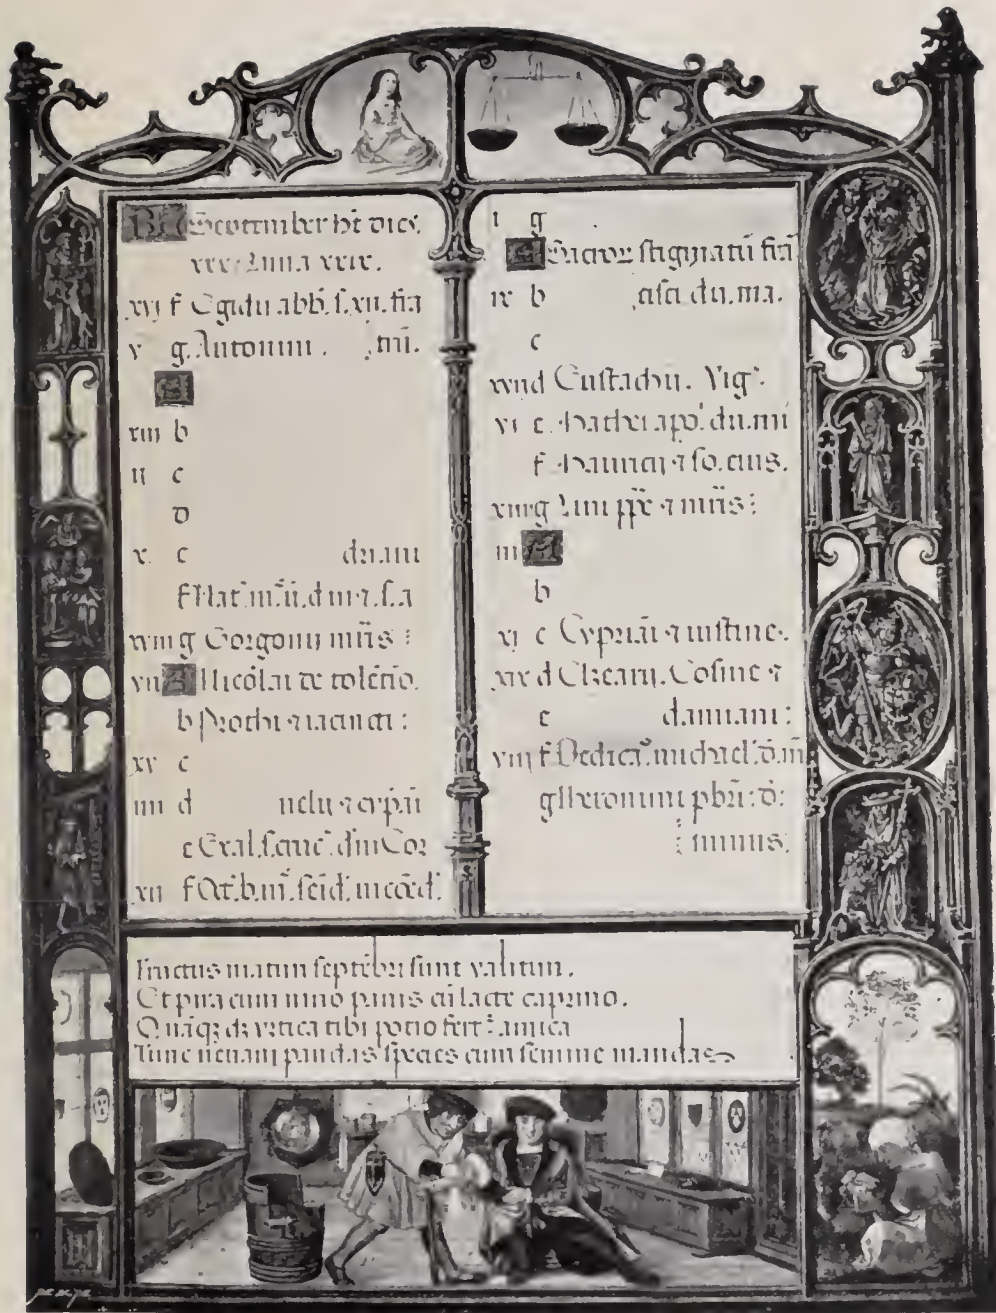 KL September ht dies
xxx. Luna xxix.
xvj f Egidii abb. s. xii. fra
v g Antonini . trũ.
A
xiii b
ii c
D
x. e du. mi
f Nat. m. ii. d
xviii g Gorgonii mr̃is :
vii A Nicolai de tolẽtio.
b Prothi ⁊ iacincti :
xv c
iiii d nelii ⁊ cypri
e Exal. s. cruc. Cor
xii f Oct. b. m. scĩd. nicõed.
i g
A Sacror stigmatũ frã
ix b cisci du. ma.
c
xvii d Eustachii. Vig.
vi e Mathei apo. du. mi
f Mauricii ⁊ so. eius.
xiiii g Lini pp̃e ⁊ mr̃is :
iii A
b
xi c Cypriãi ⁊ iustine.
xix d Elzearii. Cosme ⁊
e damiani :
viii f Dedica. michael. d. m̃
g Iheronimi pbr̃i : d :
minus.
Fructus maturi septẽbri sunt valituri.
Et pira cum vino panis cũ lacte caprino.
vrtica tibi potio fert amica
Tunc venam pandas species cum semine mandas